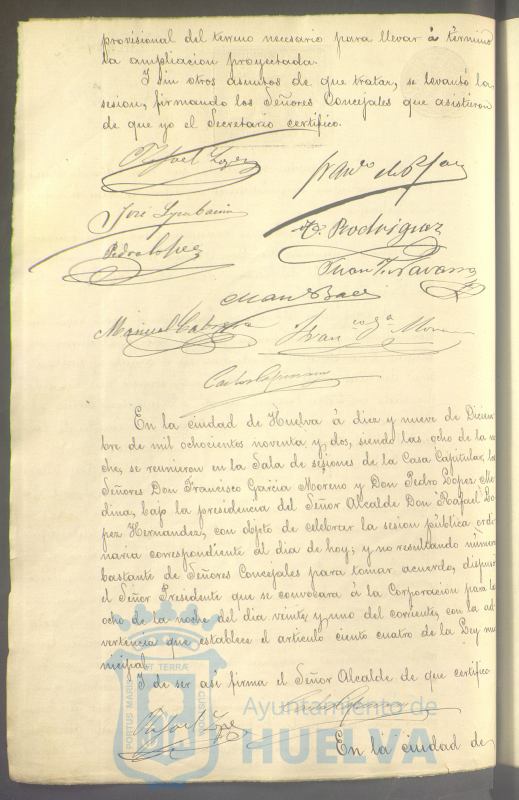 provisional del terreno necesario para llevar á término
la ampliacion proyectada.
Y sin otros asuntos de que tratar, se levantó la
sesion, firmando los Señores Concejales que asistieron
de que yo el Secretario certifico.
Rafael Lopez
José
Pedro Lopez
F. Rodriguez
Juan J. Navarro
Manuel
En la ciudad de Huelva á diez y nueve de Diciem
bre de mil ochocientos noventa y dos, siendo las ocho de la no
che, se reunieron en la Sala de sesiones de la Casa Capitular, los
Señores Don Francisco Garcia Moreno y Don Pedro Lopez Me
dina, bajo la presidencia del Señor Alcalde Don Rafael Lo
pez Hernandez, con objeto de celebrar la sesion pública ordi
naria correspondiente al dia de hoy; y no resultando número
bastante de Señores Concejales para tomar acuerdo, dispuso
el Señor Presidente que se convocára á la Corporacion para las
ocho de la noche del dia veinte y uno del corriente, con la ad
vertencia que establece el articulo ciento cuatro de la Ley mu
nicipal.
Y de ser asi firma el Señor Alcalde de que certifico
Rafael Lopez
En la ciudad de
PORTUS MARIS ET TERRÆ CUSTODIA
Ayuntamiento de
HUELVA